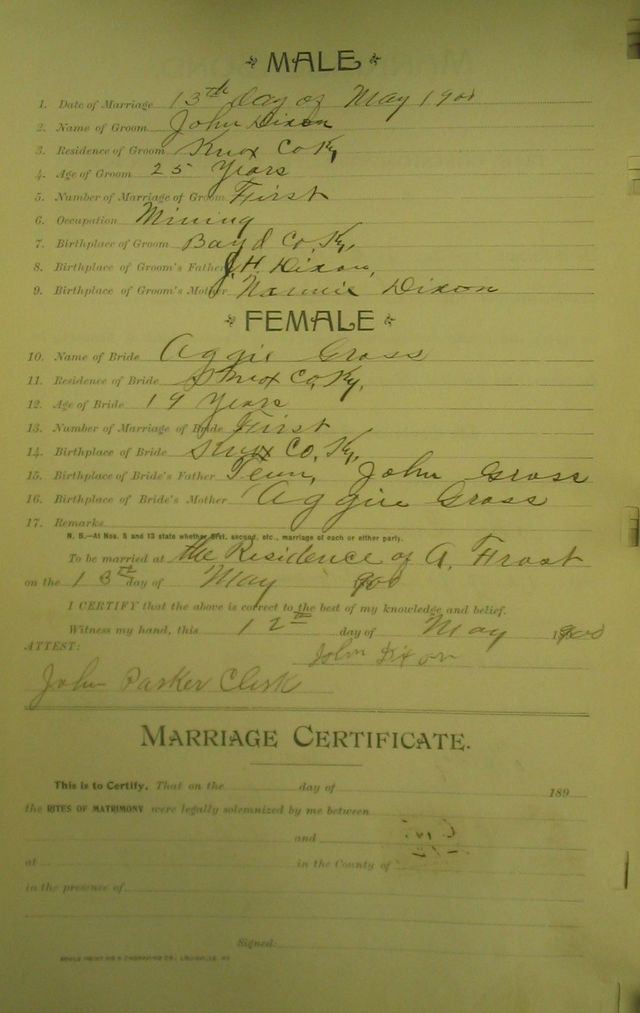 MALE
1. Date of Marriage 13th day of May 1900
2. Name of Groom John Dixon
3. Residence of Groom Knox Co Ky,
4. Age of Groom 25 Years
5. Number of Marriage of Groom First
6. Occupation Mining
7. Birthplace of Groom Boyd Co. Ky.
8. Birthplace of Groom's Father J. H. Dixon,
9. Birthplace of Groom's Mother Nannie Dixon
FEMALE
10. Name of Bride Aggie Gross
11. Residence of Bride Knox Co, Ky.
12. Age of Bride 19 Years
13. Number of Marriage of Bride First
14. Birthplace of Bride Knox Co, Ky,
15. Birthplace of Bride's Father Tenn, John Gross
16. Birthplace of Bride's Mother Aggie Gross
17. Remarks
N. B.—At Nos. 5 and 13 state whether first, second, etc., marriage of each or either party.
To be married at the Residence of A. Frost
on the 13th day of May 900
I CERTIFY that the above is correct to the best of my knowledge and belief.
Witness my hand, this 12th day of May 1900
ATTEST: John Dixon
John Parker Clerk
MARRIAGE CERTIFICATE.
This is to Certify, That on the day of 189
the RITES OF MATRIMONY were legally solemnized by me between
and
at in the County of
in the presence of
Signed: